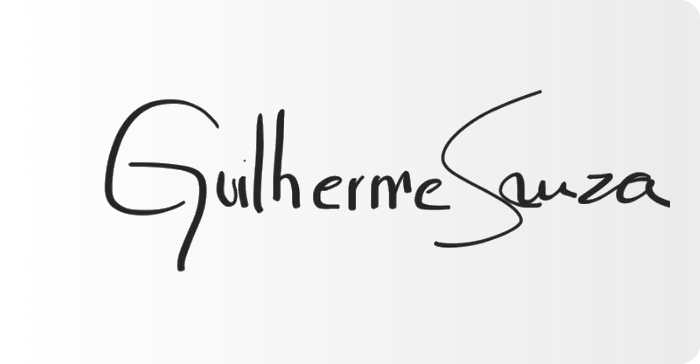 Guilherme Souza